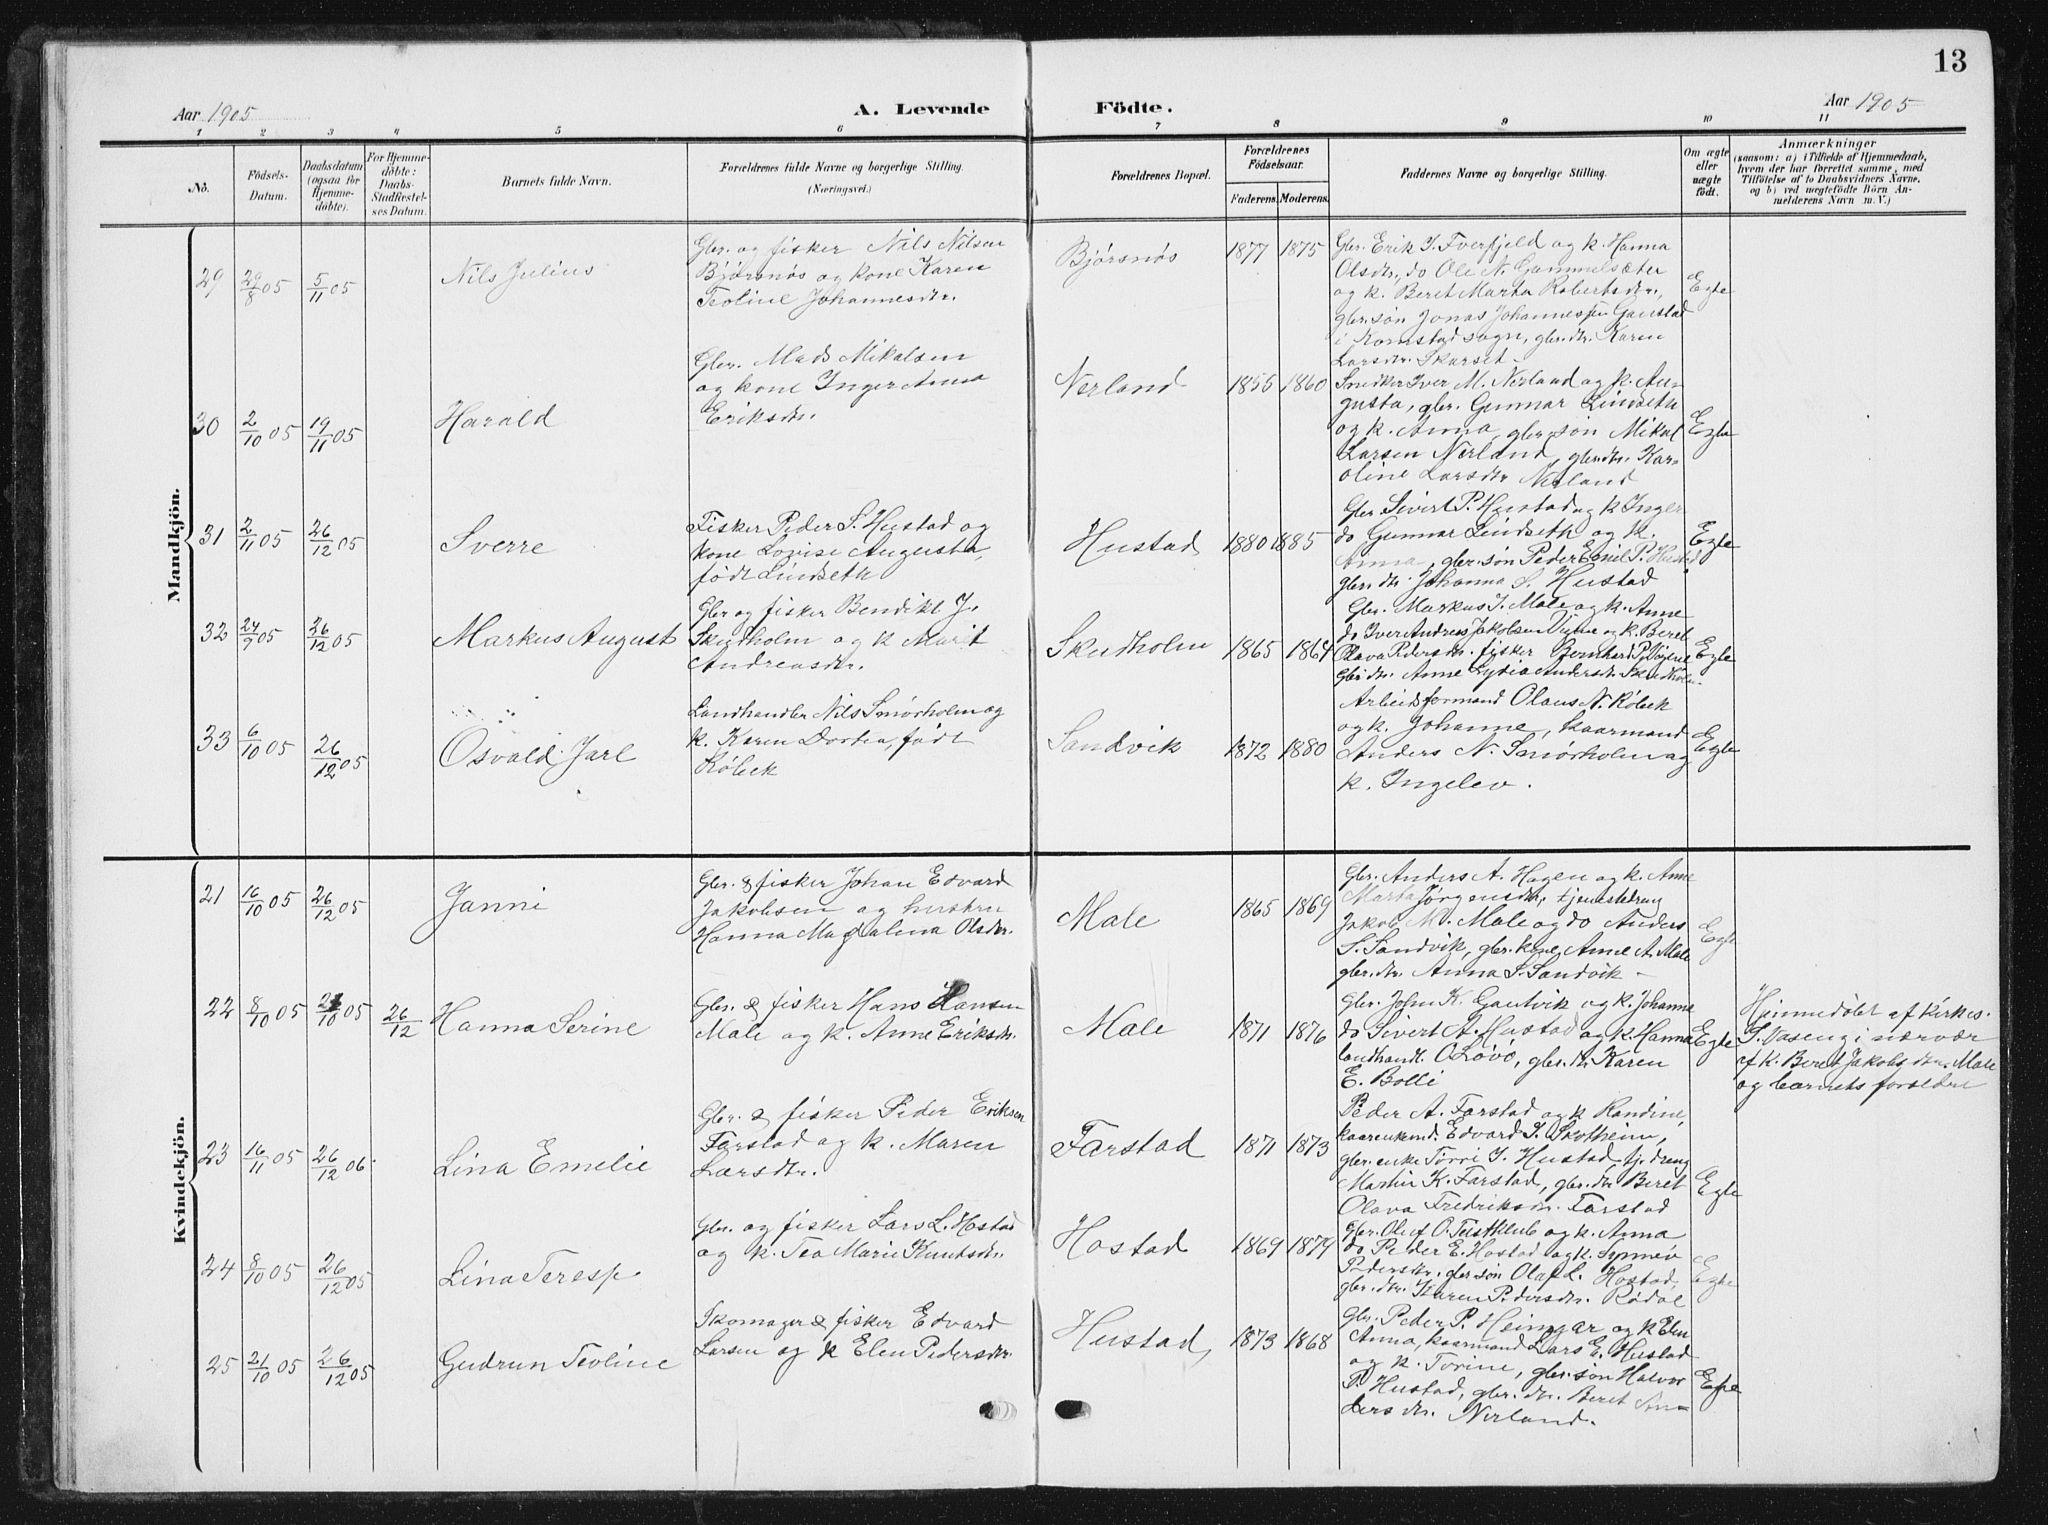 13
Aar 1905
A. Levende Födte.
Aar 1905
1 2 3 4 5 6 7 8 9 10 11
No.
Födsels-
Datum.
Daabsdatum
(ogsaa for
Hjemme-
döbte).
For Hjemme-
döbte:
Daabs-
Stadfæstel-
ses Datum.
Barnets fulde Navn.
Forældrenes fulde Navne og borgerlige Stilling.
(Næringsvei.)
Forældrenes Bopæl.
Forældrenes
Födselsaar.
Faderens. Moderens.
Faddernes Navne og borgerlige Stilling.
Om ægte
eller
uægte
födt.
Anmærkninger
(saasom: a) i Tilfælde af Hjemmedaab,
hvem der har forrettet samme, med
Tilföielse af to Daabsvidners Navne,
og b) ved uegtefödte Börn An-
melderens Navn m. V.)
Mandkjön.
29 29/8 05 5/11 05 Nils Julius
Gbr. og fisker Nils Nilsen
Bjørsnøs og kone Karen
Teoline Johannesdtr.
Bjørsnøs 1877 1875
Gbr. Erik T. Tverfjeld og k. Hanna
Olsdtr, do Ole N. Gammelsæter
og k. Beret Marta Robertsdtr.,
gbr.søn Jonas Johannessen Gaustad
i Kornstad sogn, gbr.dtr. Karen
Larsdtr. Skarset.
Egte
30 2/10 05 19/11 05 Harald
Gbr. Mads Mikalsen
og kone Inger Anna
Eriksdtr.
Nerland 1855 1860
Snedker Iver M. Nerland og k. Au-
gusta, gbr. Gunnar Lindseth
og k. Anna, gbr.søn Mikal
Larsen Nerland, gbr.dtr. Kar-
oline Larsdtr Nerland
Egte
31 2/11 05 26/12 05 Sverre
Fisker Peder S. Hustad og
kone Lovise Augusta,
født Lindseth
Hustad 1880 1885
Gbr Sivert P. Hustad og k Inger
do Gunnar Lindseth og k.
Anna, gbr.søn Peder Emil P. Hustad
gbr.dtr. Johanna S. Hustad
Egte
32 24/9 05 26/12 05 Markus August
Gbr og fisker Bendikt J.
Skudholm og k Marit
Andreasdtr.
Skudholm 1865 1864
Gbr. Markus J. Male og k. Anne
do Iver Andreas Jakobsen og k. Beret
Olava Pedersdtr. fisker Bernhard P.
Gbr dtr. Anne Lydia Andersdtr. Skudholm.
Egte
33 6/10 05 26/12 05 Osvald Jarl
Landhandler Nils Smørholm og
k. Karen Dortea, født
Røbek
Sandvik 1872 1880
Arbeidsformand Olaus N. Røbek
og k. Johanne, kaarmand
Anders N. Smørholm og
k. Ingelev.
Egte
Kvindekjön.
21 16/10 05 26/12 05 Janni
Gbr. & fisker Johan Edvard
Jakobsen og hustru
Hanna Magdalena Olsdtr.
Male 1865 1869
Gbr. Anders A. Hagen og k. Anne
Marta Jørgensdtr, tjenestedreng
Jakob M. Male og do Anders
S. Sandvik, gbr. kone Anne A. Male
gbr.dtr. Anna S. Sandvik –
Egte
22 8/10 05 21/10 05 26/12 Hanna Serine
Gbr. & fisker Hans Hansen
Male og k. Anne Eriksdtr.
Male 1871 1876
Gbr. John K. Gautvik og k. Johanne
do Sivert A. Hustad og k. Hanna
landhandl. O. Løvø, gbr.dtr. Karen
E. Bolli
Egte
Hjemmedøbt af kirkes.
T. Vaseng i nærvær
af k. Beret Jakobsdtr. Male
og barnets forældre
23 16/11 05 26/12 06. Lina Emelie
Gbr. & fisker Peder Eriksen
Farstad og k. Maren
Larsdtr.
Farstad 1871 1873
Peder A. Farstad og k Randine,
kaarenkmd. Edvard J. Skotheim,
gbr.enke Tørri J. Hustad, tj.dreng
Martin K. Farstad, gbr.dtr Beret
Olava Fredriksdtr. Farstad
Egte
24 8/10 05 26/12 05 Lina Teresp
Gbr. og fisker Lars L. Hostad
og k. Tea Marie Knutsdtr.
Hostad 1869 1879
Gbr. Oluf O. og k. Anna
do Peder E. Hostad og k. Synnøv
Pedersdtr. gbr.søn Olaf L. Hostad,
gbr.dtr. Karen Pedersdtr. Rødal
Egte
25 21/10 05 26/12 05 Gudrun Teoline
Skomager & fisker Edvard
Larsen og k Elen Pedersdtr.
Hustad, 1873 1868
Gbr. Peder P. og k Elen
Anna, kaarmand Lars E. Hustad
og k. Torine, gbr.søn Halvor
P. Hustad, gbr.dtr. Beret An-
dersdtr. Nerland.
Egte